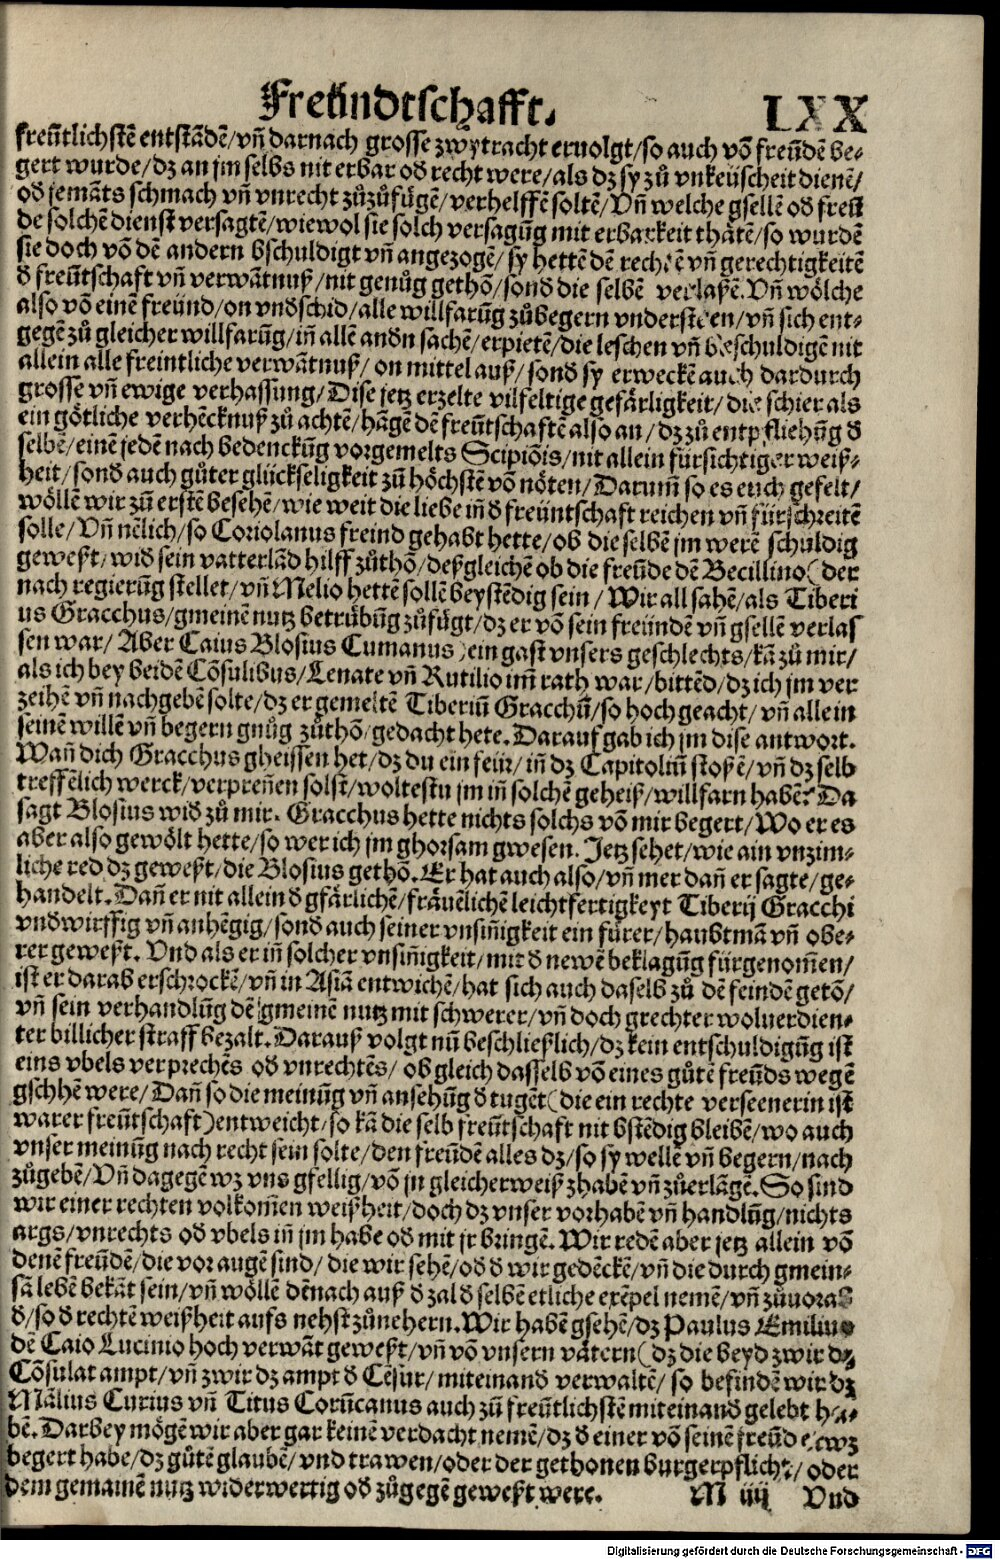 Freündtschafft. LXX
freüntlichstē entstādē/vñ darnach grosse zwytracht eruolgt/so auch vō freündē be-
gert wurde/dz an jm selbs nit erbar oð recht were/als dz sy zů vnkeüscheit dienē/
oð jemāts schmach vñ vnrecht zůzůfügē/verhelffē soltē/Vñ welche gsellē oð freü
de solchē dienst versagtē/wiewol sie solch versagūg mit erbarkeit thätē/so wurdē
sie doch vō dē andern bschuldigt vñ angezogē/sy hettē dē rechtē vñ gerechtigkeitē
ð freüntschaft vñ verwātnuß/nit genůg gethō/sonð die selbē verlaßē. Vñ wölche
also vō einē freünd/on vndschid/alle willfarūg zůbegern vndersteen/vñ sich ent-
gegē zů gleicher willfarūg/iñ allē andn sachē/erpietē/die leschen vñ beschuldigē nit
allein alle freintliche verwātnuß/on mittel auß/sonð sy erweckē auch dardurch
grosse vñ ewige verhassung/Dise jetz erzelte vilfeltige gefärligkeit/die schier als
ein götliche verhēcknuß zů achtē/hāgē dē freüntschaftē also an/dz zů entpfliehūg ð
selbē/einē jedē nach bedenckūg vorgemelts Scipiōis/nit allein fürsichtiger weiß-
heit/sonð auch gůter glückseligkeit zū höchstē vō nöten/Darumm so es euch gefelt/
wöllē wir zū erstē besehē/wie weit die liebe iñ ð freüntschaft reichen vñ fürschreitē
solle/Vñ nēlich/so Coriolanus freind gehabt hette/ob die selbē jm werē schuldig
geweßt/wið sein vatterlād hilff zůthō/deßgleichē ob die freünde dē Becillino(der
nach regierūg stellet/vñ Melio hettē sollē beystēdig sein/Wir all sahē/als Tiberi
us Gracchus/gmeinē nutz betrübūg zůfügt/dz er vō sein freündē vñ gsellē verlas
sen war/Aber Caius Blosius Cumanus)ein gast vnsers geschlechts/kā zů mir/
als ich bey beidē Cōsulibus/Lenate vñ Rutilio imm rath war/bittēd/dz ich jm ver
zeihē vñ nachgebē solte/dz er gemeltē Tiberiū Gracchū/so hoch geacht/vñ allein
seinē willē vñ begern gnůg zůthō/gedacht hete. Darauf gab ich jm dise antwort.
Wañ dich Gracchus gheissen het/dz du ein feür/iñ dz Capitoliū stoßē/vñ dz selb
treffēlich werck/verpreñen solst/woltestu jm iñ solchē geheiß/willfarn haben? Da
sagt Blosius wið zů mir. Gracchus hette nichts solchs vō mir begert/Wo er es
aber also gewölt hette/so wer ich jm ghorsam gwesen. Jetz sehet/wie ain vnzim-
liche red dz geweßt/die Blosius gethō. Er hat auch also/vñ mer dañ er sagte/ge-
handelt. Dañ er nit allein ð gfärlichē/fräuēlichē leichtfertigkeyt Tiberij Gracchi
vndwirffig vñ anhēgig/sonð auch seiner vnsiñigkeit ein fürer/haubtmā vñ obe-
rer geweßt. Vnd als er iñ solcher vnsiñigkeit/mit ð newē beklagūg fürgenom̄en/
ist er darab erschrockē/vñ in Asiā entwichē/hat sich auch daselb zů dē feindē getō/
vñ sein verhandlūg dē gmeinē nutz mit schwerer/vñ doch grechter woluerdien-
ter billicher straff bezalt. Darauß volgt nū beschließlich/dz kein entschuldigūg ist
eins vbels verprechēs oð vnrechtēs/ob gleich dasselb vō eines gůtē freünds wegē
gschhē were/Dañ so die meinūg vñ ansehūg ð tugēt(die ein rechte verseenerin ist
warer freüntschaft)entweicht/so kā die selb freüntschaft nit bstēdig bleibē/wo auch
vnser meinūg nach recht sein solte/den freündē alles dz/so sy wellē vñ begern/nach
zůgebē/Vñ dagegē wz vns gfellig/vō jn gleicherweiß zhabē vñ zůerlāgē. So sind
wir einer rechten volkom̄en weißheit/doch dz vnser vorhabē vñ handlūg/nichts
args/vnrechts oð vbels iñ jm habe oð mit jr bringē. Wir redē aber jetz allein vō
denē freündē/die vor augē sind/die wir sehē/oð ð wir gedēckē/vñ die durch gmein-
sā lebē bekāt sein/vñ wöllē dēnach auß ð zal ð selbē etliche exēpel nemē/vñ zůuoraß
ð/so ð rechtē weißheit aufs nehst zůnehern. Wir habē gsehē/dz Paulus Emilius
dē Caio Lucinio hoch verwāt geweßt/vñ vō vnsern vätern(dz die beyd zwir dz
Cōsulat ampt/vñ zwir dz ampt ð Cēsur/miteinanð verwaltē/so befindē wir dz
Mālius Curius vñ Titus Corūcanus auch zū freüntlichstē miteinanð gelebt ha-
bē. Darbey mögē wir aber gar keinē verdacht nemē/dz ð einer vō seinē freünd etwz
begert habe/dz gůtē glaubē/vnd trawen/oder der gethonen burgerpflicht/oder
dem gemainē nutz widerwertig oð zůgegē geweßt were. M iiij Vnd
Digitalisierung gefördert durch die Deutsche Forschungsgemeinschaft - DFG